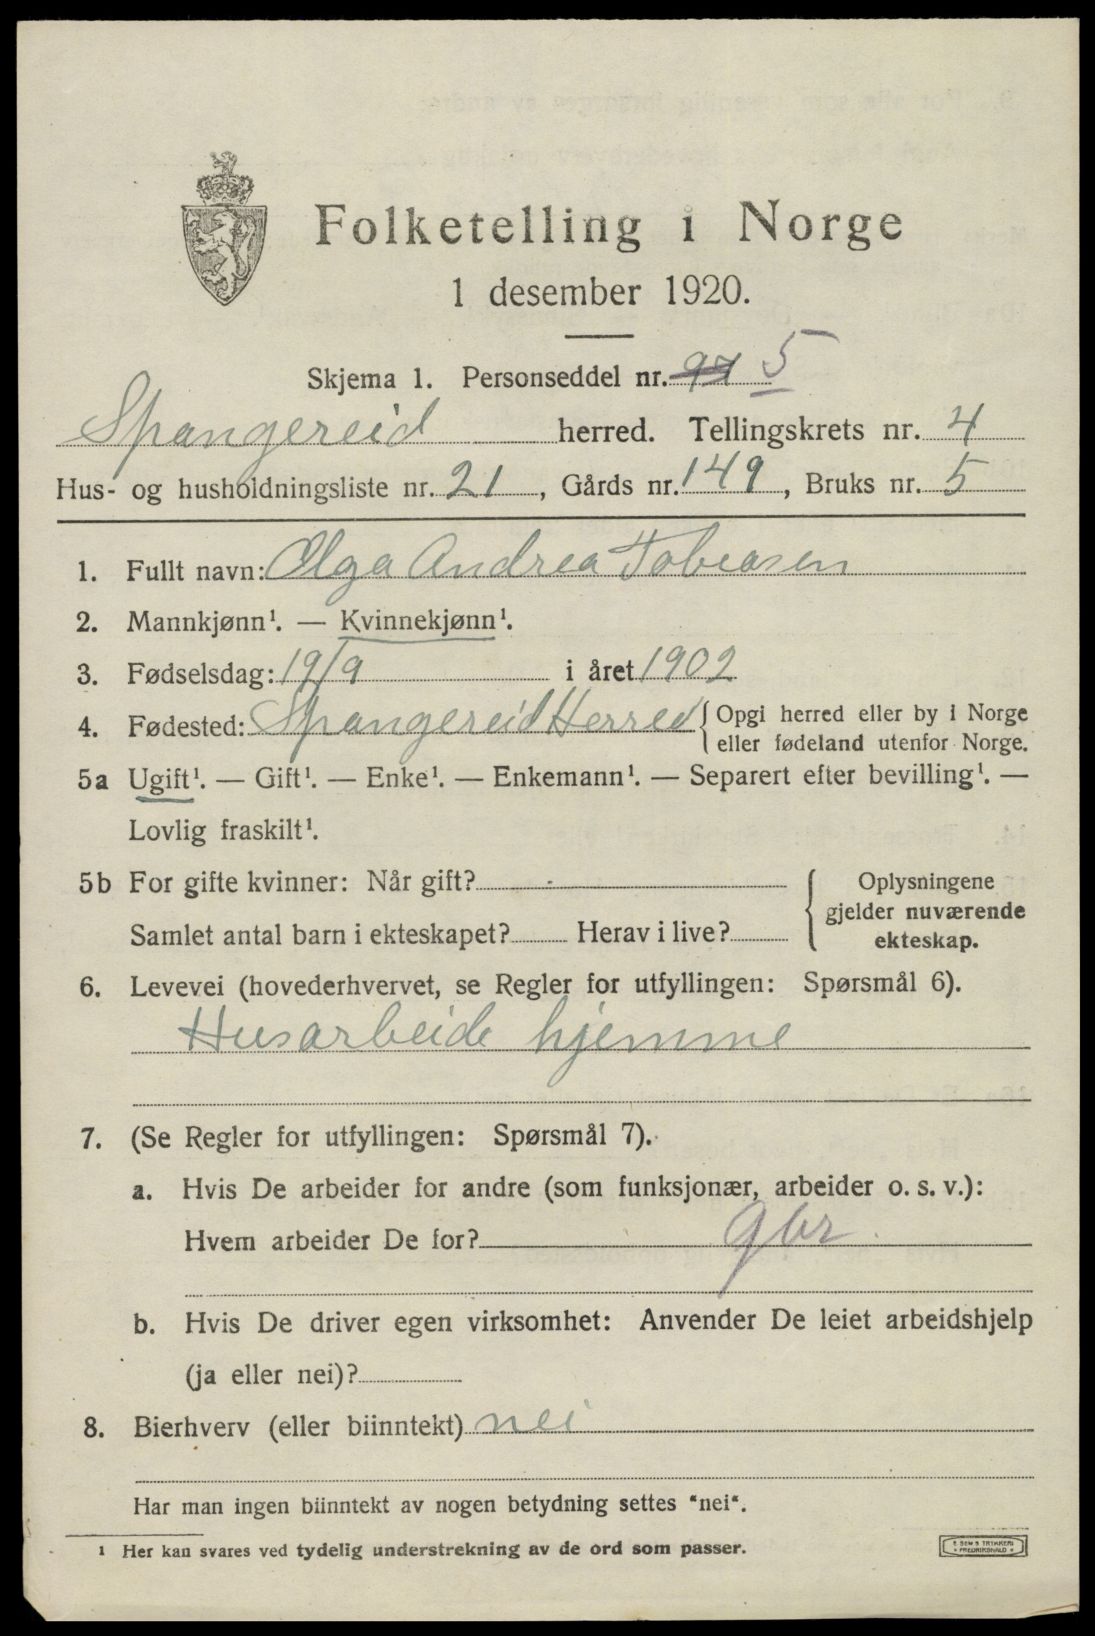 Folketelling i Norge
1 desember 1920.
Skjema 1. Personseddel nr. 97 5
Spangereid herred. Tellingskrets nr. 4
Hus- og husholdningsliste nr. 21, Gårds nr. 149, Bruks nr. 5
1. Fullt navn: Olga Andrea Tobiasen
2. Mannkjønn¹. — Kvinnekjønn¹.
3. Fødselsdag: 19/9 i året 1902
4. Fødested: Spangereid Herred { Opgi herred eller by i Norge
eller fødeland utenfor Norge.
5a Ugift¹. — Gift¹. — Enke¹. — Enkemann¹. — Separert efter bevilling¹. —
Lovlig fraskilt¹.
5b For gifte kvinner: Når gift?
Samlet antal barn i ekteskapet? Herav i live?
{ Oplysningene
gjelder nuværende
ekteskap.
6. Levevei (hovederhvervet, se Regler for utfyllingen: Spørsmål 6).
Husarbeide hjemme
7. (Se Regler for utfyllingen: Spørsmål 7).
a. Hvis De arbeider for andre (som funksjonær, arbeider o. s. v.):
Hvem arbeider De for? gbr.
b. Hvis De driver egen virksomhet: Anvender De leiet arbeidshjelp
(ja eller nei)?
8. Bierhverv (eller biinntekt) nei
Har man ingen biinntekt av nogen betydning settes "nei".
¹ Her kan svares ved tydelig understrekning av de ord som passer.